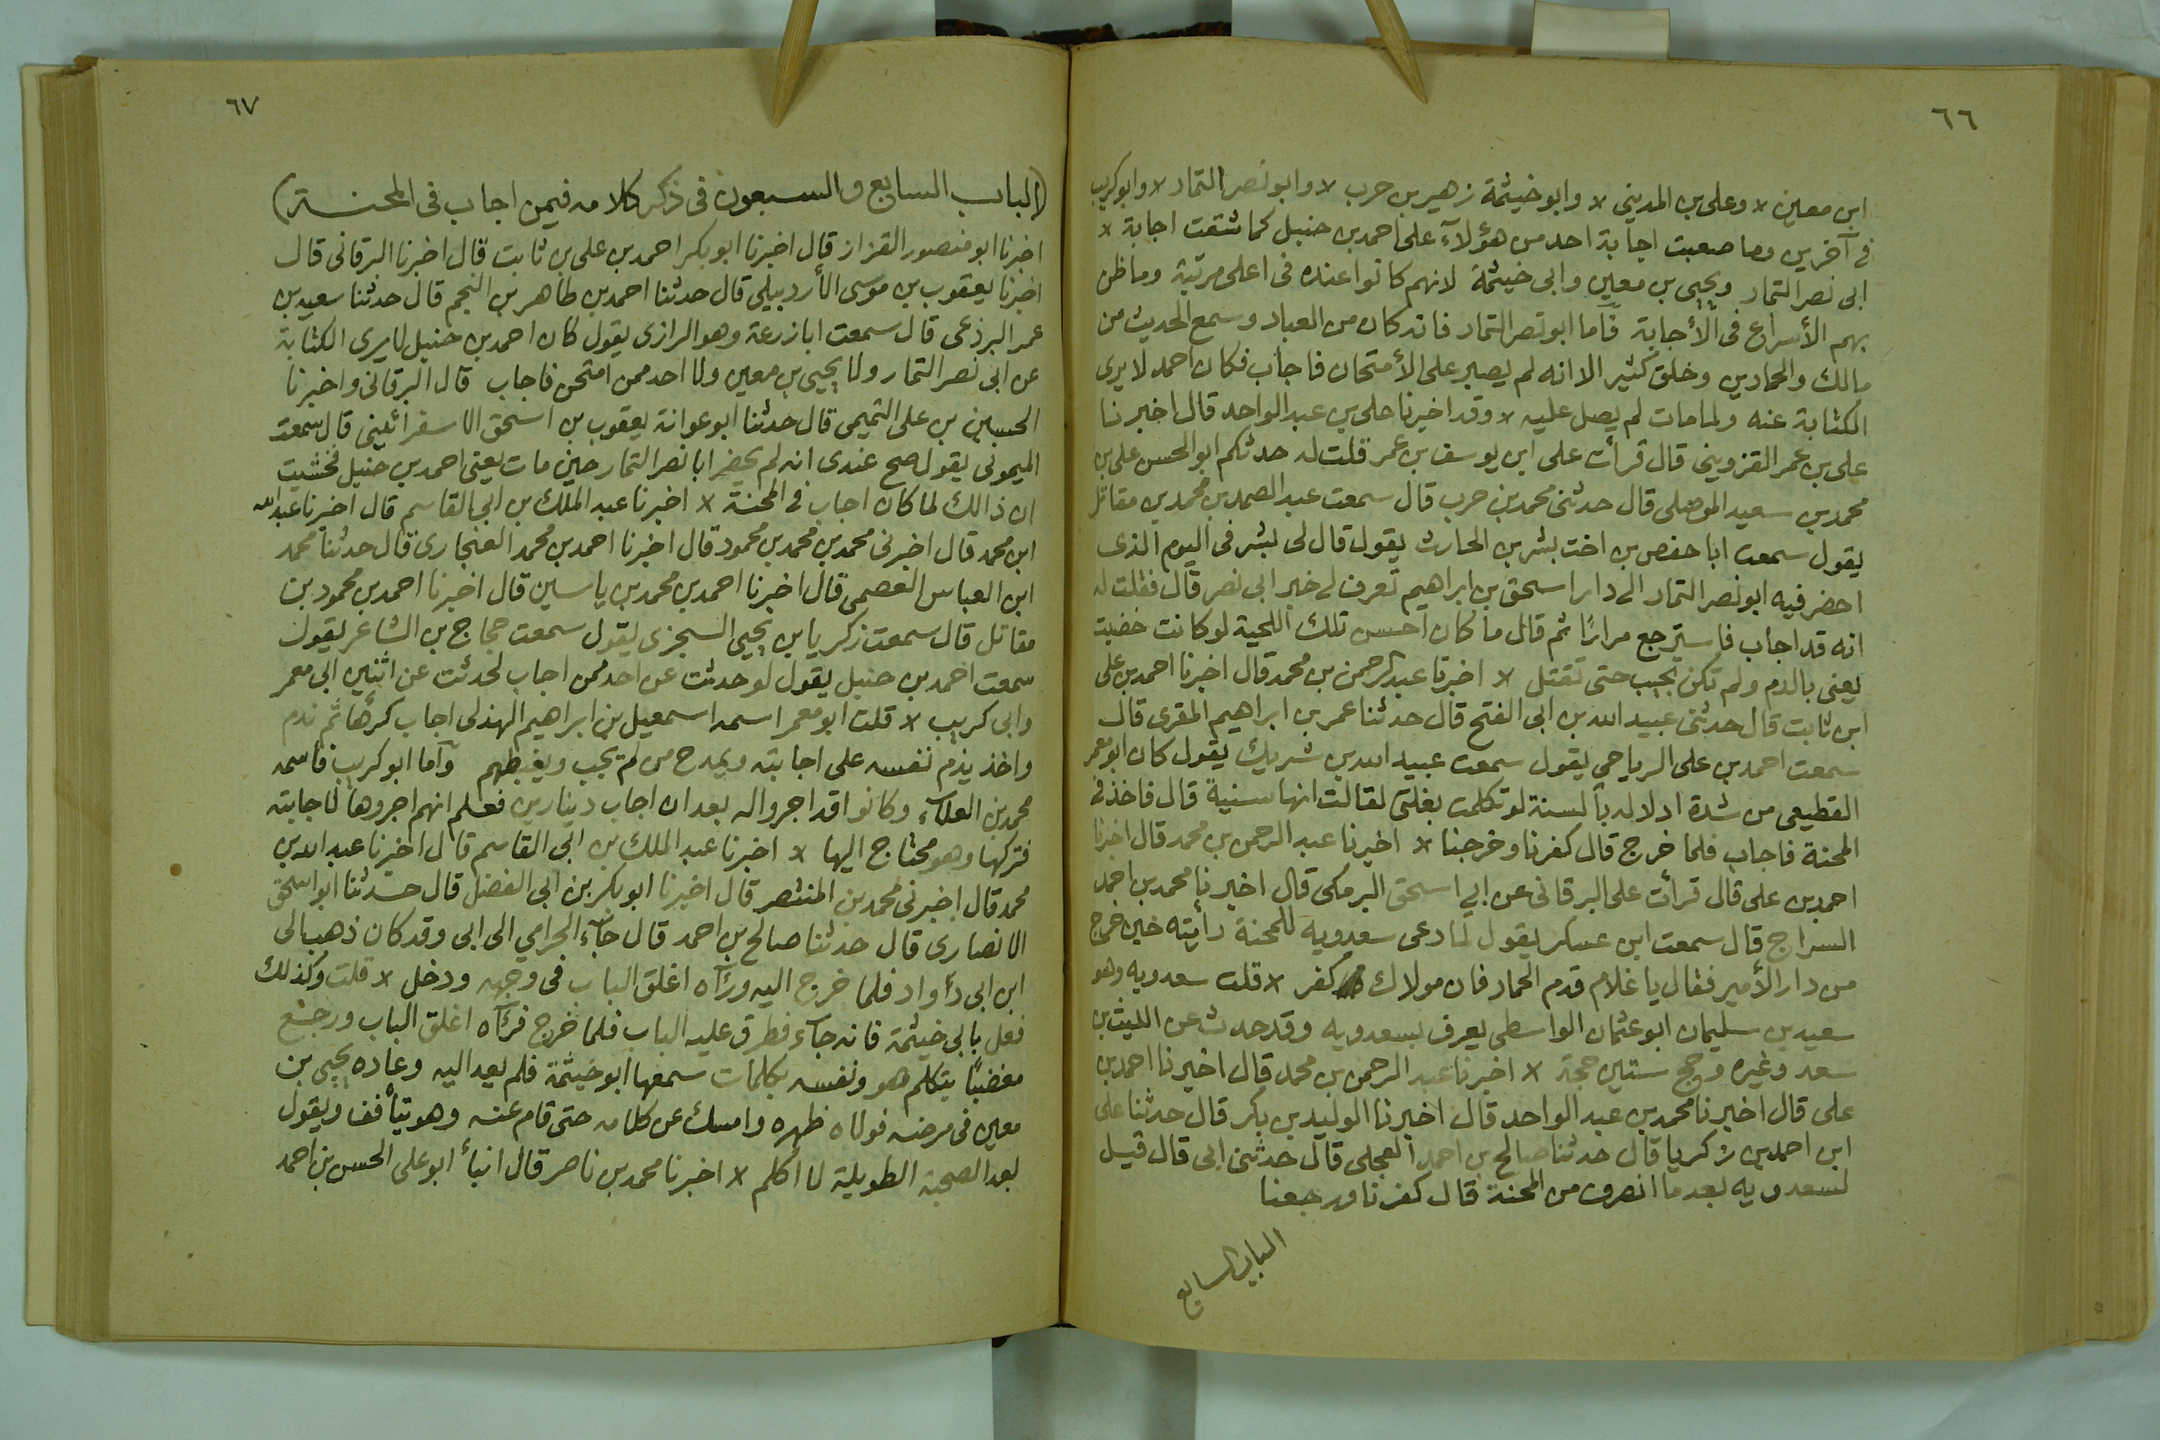 ٦٦
ابن معين * وعلى بن المدينى * وابو خيثمة زهير بن حرب * وابو نصر التمار * وابو كريب
فى آخرين وما صعبت اجابة احد من هؤلآء على احمد بن حنبل كما شقت اجابة *
ابى نصر التمار ويحيى بن معين وابى خيثمة لانهم كانوا عنده فى اعلى مرتبة وما ظن
بهم الأسراع فى الأجابة فأما ابو نصر التمار فانه كان من العباد وسمع الحديث من
مالك والحمادين وخلق كثير الا انه لم يصبر على الأمتحان فاجاب فكان احمد لا يرى
الكتابة عنه ولما مات لم يصل عليه * وقد اخبرنا على بن عبد الواحد قال اخبرنا
على بن عمر القزوينى قال قرأت على ابن يوسف بن عمر قلت له حدثكم ابو الحسن على بن
محمد بن سعيد الموصلى قال حدثنى محمد بن حرب قال سمعت عبد الصمد بن محمد بن مقاتل
يقول سمعت ابا حفص بن اخت بشر بن الحارث يقول قال لى بشر فى اليوم الذى
احضر فيه ابو نصر التمار الى دار اسحق بن ابراهيم تعرف لى خبر ابى نصر قال فقلت له
انه قد اجاب فاسترجع مرارًا ثم قال ما كان احسن تلك اللحية لو كانت خضبت
يعنى بالدم ولم تكن يجيب حتى تقتل * اخبرنا عبد الرحمن بن محمد قال اخبرنا احمد بن على
ابن ثابت قال حدثنى عبيد الله بن ابى الفتح قال حدثنا عمر بن ابراهيم المقرى قال
سمعت احمد بن على الرياحى يقول سمعت عبيد الله بن شريك يقول كان ابو معمر
القطيعى من شدة ادلاله بالسنة لو تكلمت بغلتى لقالت انها سنية قال فاخذ فى
المحنة فاجاب فلما خرج قال كفرنا وخرجنا * اخبرنا عبد الرحمن بن محمد قال اخبرنا
احمد بن على قال قرأت على البرقانى عن ابى اسحق البرمكى قال اخبرنا محمد بن احمد
السراج قال سمعت ابن عسكر يقول لما دعى سعدويه للمحنة رأيته حين خرج
من دار الأمير فقال يا غلام قدم الحمار فان مولاك كفر * قلت سعدويه وهو
سعيد بن سليمان ابو عثمان الواسطى يعرف بسعدويه وقد حدث عن الليث بن
سعد وغيره وحج ستين حجة * اخبرنا عبد الرحمن بن محمد قال اخبرنا احمد بن
على قال اخبرنا محمد بن عبد الواحد قال اخبرنا الوليد بن بكر قال حدثنا على
ابن احمد بن زكريا قال حدثنا صالح بن احمد العجلى قال حدثنى ابى قال قيل
لسعدويه بعد ما انصرف من المحنة قال كفرنا ورجعنا
الباب السابع
٦٧
(الباب السابع والسبعون فى ذكر كلامه فيمن اجاب فى المحنة)
اخبرنا ابو منصور القزاز قال اخبرنا ابو بكر احمد بن على بن ثابت قال اخبرنا البرقانى قال
اخبرنا يعقوب بن موسى الأردبيلى قال حدثنا احمد بن طاهر بن النجم قال حدثنا سعيد بن
عمر البرذعى قال سمعت ابا زرعة وهو الرازى يقول كان احمد بن حنبل لا يرى الكتابة
عن ابى نصر التمار ولا يحيى بن معين ولا احد ممن امتحن فاجاب قال البرقانى واخبرنا
الحسين بن على التميمى قال حدثنا ابو عوانة يعقوب بن اسحق الاسفرائينى قال سمعت
الميمونى يقول صح عندى انه لم يحضر ابا نصر التمار حين مات يعنى احمد بن حنبل فحسبت
ان ذالك لما كان اجاب فى المحنة * اخبرنا عبد الملك بن ابى القاسم قال اخبرنا عبد الله
ابن محمد قال اخبرنى محمد بن محمد بن محمود قال اخبرنا احمد بن محمد الغنجارى قال حدثنا محمد
ابن العباس العصمى قال اخبرنا احمد بن محمد بن ياسين قال اخبرنا احمد بن محمود بن
مقاتل قال سمعت زكريا بن يحيى السجزى يقول سمعت حجاج بن الشاعر يقول
سمعت احمد بن حنبل يقول لو حدثت عن احد ممن اجاب لحدثت عن اثنين ابى معمر
وابى كريب * قلت ابو معمر اسمه اسمعيل بن ابراهيم الهذلى اجاب كرهًا ثم ندم
واخذ يذم نفسه على اجابته ويمدح من لم يجب ويغبطهم وآما ابو كريب فاسمه
محمد بن العلآء وكانوا قد اجروا له بعد ان اجاب دينارين فعلم انهم اجروها لاجابته
فتركها وهو محتاج اليها * اخبرنا عبد الملك بن ابى القاسم قال اخبرنا عبد الله بن
محمد قال اخبرنى محمد بن المنتصر قال اخبرنا ابو بكر بن ابى الفضل قال حدثنا ابو اسحق
الانصارى قال حدثنا صالح بن احمد قال جآء الحرامى الى ابى وقد كان ذهب الى
ابن ابى دأواد فلما خرج اليه ورآه اغلق الباب فى وجهه ودخل * قلت وكذلك
فعل بابى خيثمة فانه جآء فطرق عليه الباب فلما خرج فرآه اغلق الباب ورجع
مغضبًا يتكلم هو ونفسه بكلمات سمعها ابو خيثمة فلم يعد اليه وعاده يحيى بن
معين فى مرضه فولاه ظهره وامسك عن كلامه حتى قام عنه وهو يتأفف ويقول
بعد الصحبة الطويلة لا أكلم * اخبرنا محمد بن ناصر قال انبأ ابو على الحسن بن احمد